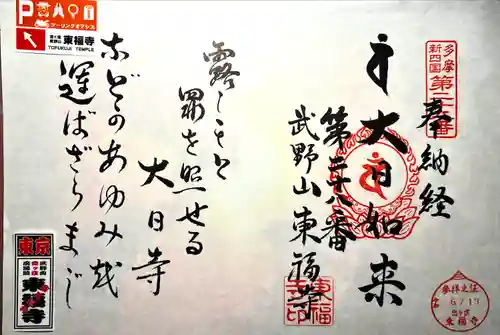 多摩
新四国 第二十八番
奉納経
大日如来
第二十八番
武野山東福寺
露しもと
罪を照せる
大日寺
などのあゆみを
運ばざらまじ
P
ツーリングオアシス
東福寺
TOFUKUJI TEMPLE
東京
東福寺
東福寺印
6/19
東福寺